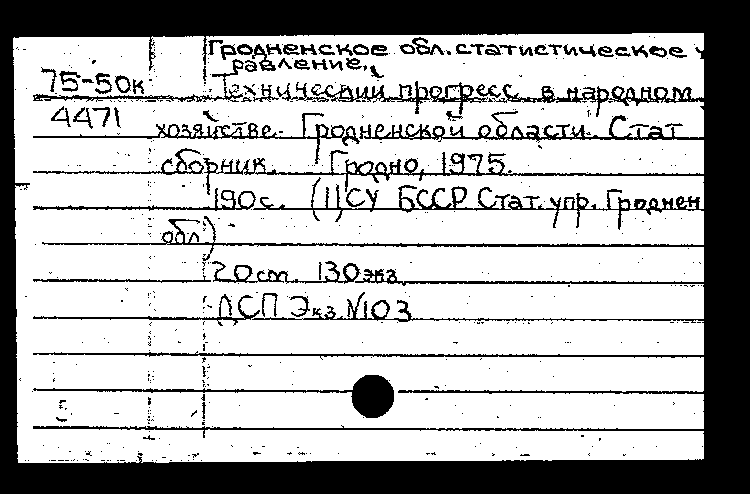 Гродненское обл. статистическое у
равление.
75-50к Технический прогресс в народном
4471 хозяйстве. Гродненской области. Стат
сборник. Гродно, 1975.
190с. (ЦСУ БССР Стат. упр. Гроднен
обл.)
20см. 130экз.
ДСП Экз. N103
5